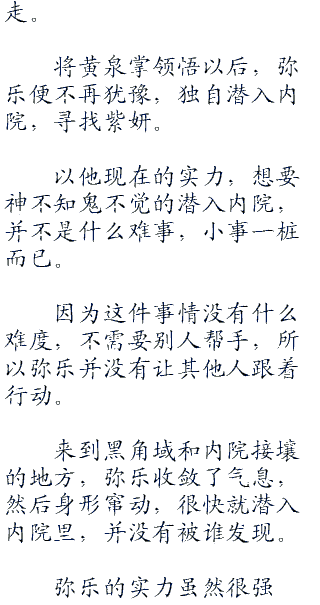 走。
将黄泉掌领悟以后，弥
乐便不再犹豫，独自潜入内
院，寻找紫妍。
以他现在的实力，想要
神不知鬼不觉的潜入内院，
并不是什么难事，小事一桩
而已。
因为这件事情没有什么
难度，不需要别人帮手，所
以弥乐并没有让其他人跟着
行动。
来到黑角域和内院接壤
的地方，弥乐收敛了气息，
然后身形窜动，很快就潜入
内院里，并没有被谁发现。
弥乐的实力虽然很强